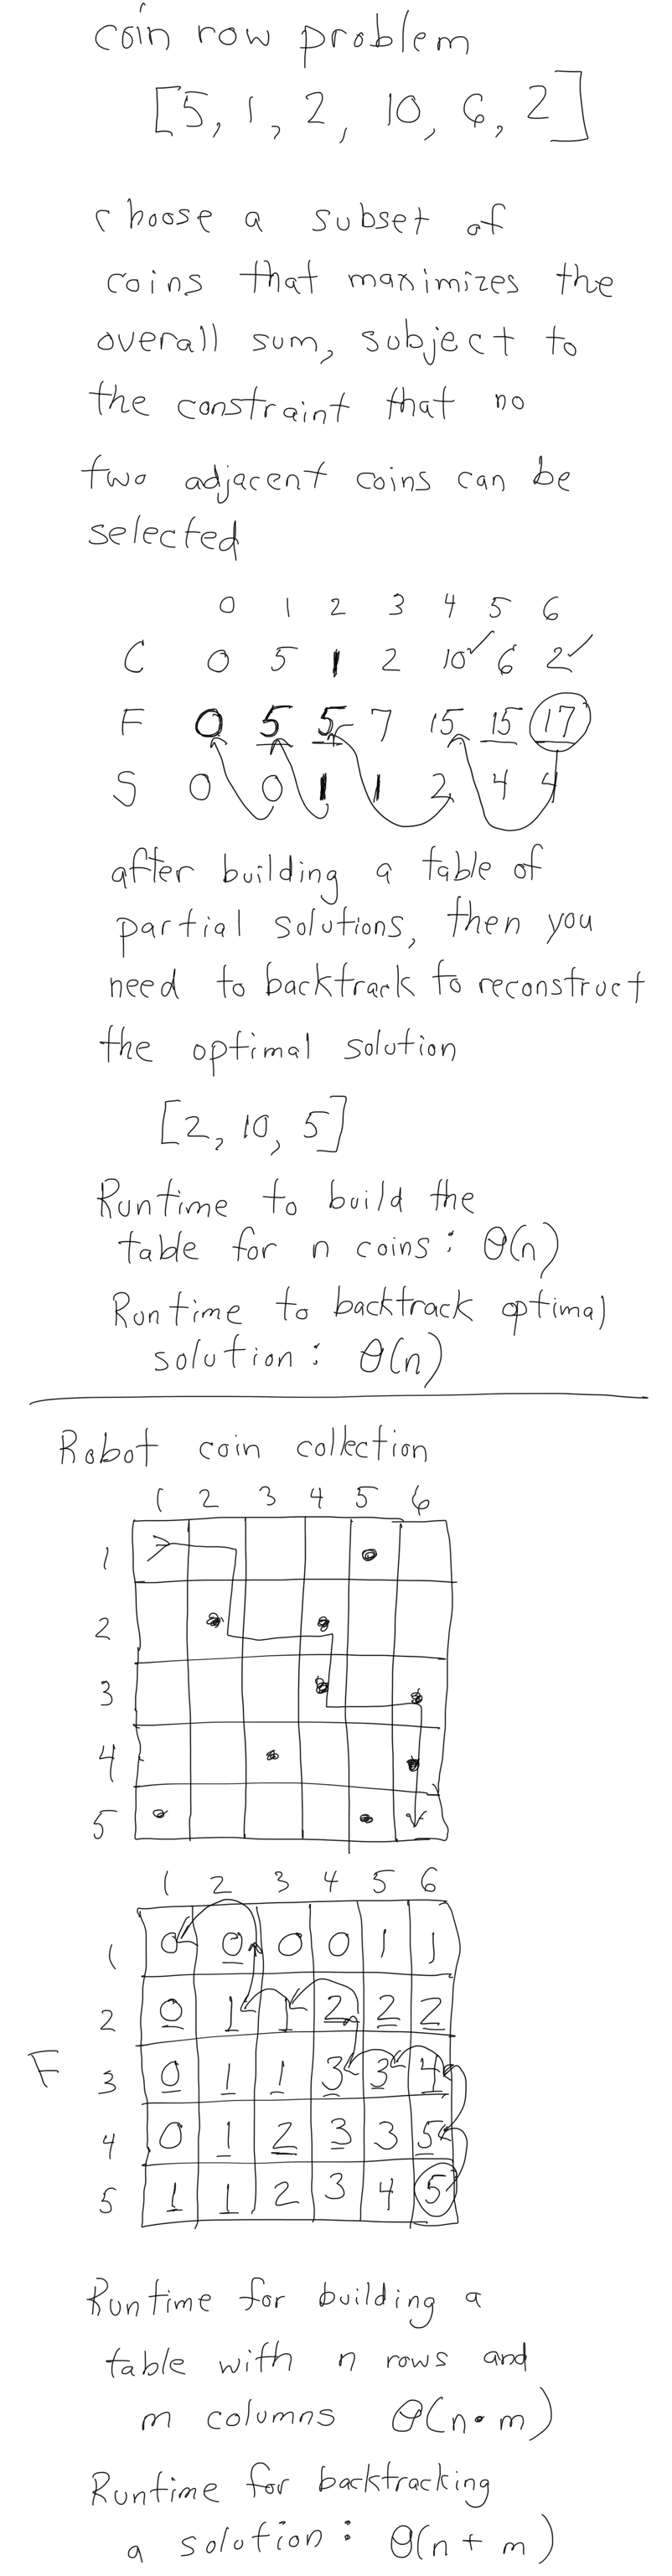 coin row problem
[5, 1, 2, 10, 6, 2]
choose a subset of
coins that maximizes the
overall sum, subject to
the constraint that no
two adjacent coins can be
selected
0 1 2 3 4 5 6
C 0 5 1 2 10✓ 6 2✓
F 0 5 5 7 15 15 17
S 0 0 1 1 2 4 4
after building a table of
partial solutions, then you
need to backtrack to reconstruct
the optimal solution
[2, 10, 5]
Runtime to build the
table for n coins: Θ(n)
Runtime to backtrack optimal
solution: Θ(n)
Robot coin collection
1 2 3 4 5 6
1
2
3
4
5
1 2 3 4 5 6
1 0 0 0 0 1 1
2 0 1 1 2 2 2
F 3 0 1 1 3 3 4
4 0 1 2 3 3 5
5 1 1 2 3 4 5
Runtime for building a
table with n rows and
m columns Θ(n•m)
Runtime for backtracking
a solution: Θ(n + m)